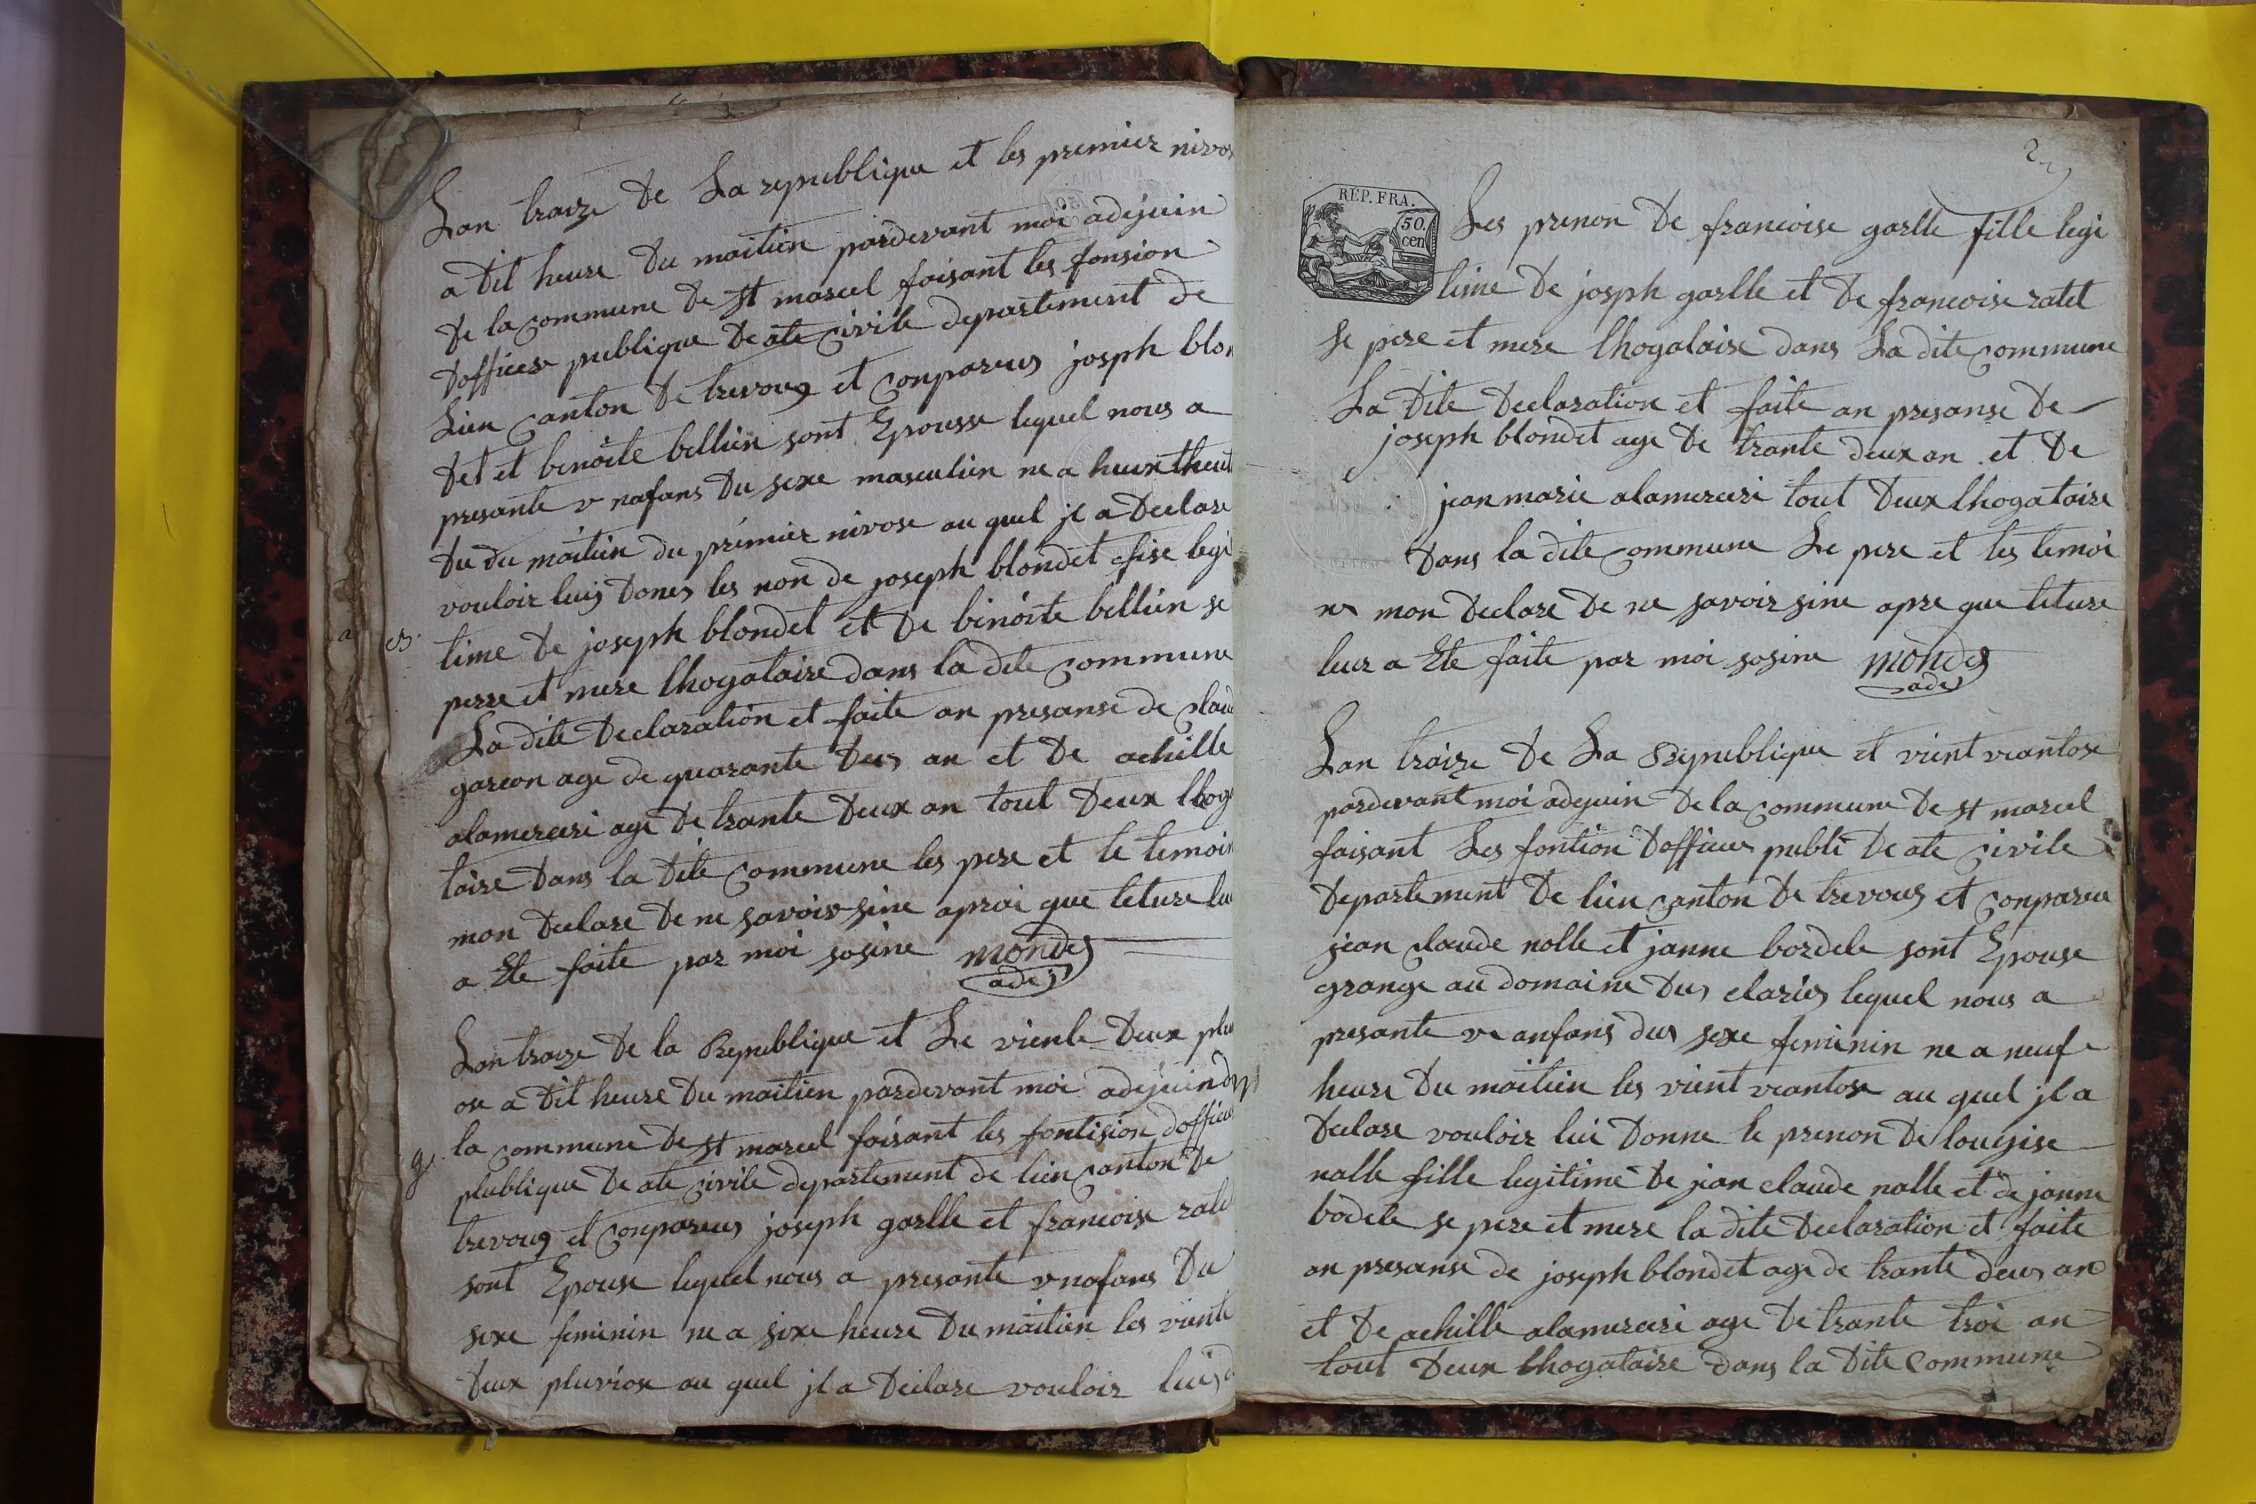 Lan traize de La republique et les premier nivos
a dit heure du maitien pardevant moi adejuin
de la commune de st marcel faisant les fonsion
dofficer publique de ate civile departement de
Lien canton de trevoux et conparus josph blon
det et benoite bellien sont Epousse lequel nous a
presante v nafans du sexe masculien ne a heur theur
du du maitien du premier nivose au quel jl a declare
vouloir luis dones les non de joseph blondet fise legi
time de joseph blondet et de binoite bellien se
perre et mere lhogataire dans la dite commune
La dite declaration et faite an presanse de clau
garcon age de quarante deus an et de achille
alamerceri age de trante deux an tout deux lhoga
taire dans la dite commune les pere et le temoin
mon declare de ne savoir sine aprai que leture lu
a Ete faite par moi sosine mondes
ade
Lan traize de la Republique et Le viente deux plu
ose a dit heure du maitien pardevant moi adejuin de
la commune de st marcel faisant les fontision dofficer
plublique de ate civile departement de lien canton de
trevoux et conparus joseph garlle et francoise rate
sont Epouse lequel nous a presante vnafans du
sexe feminin ne a sixe heure du maitien les viente
deux pluviose au quel jl a declare vouloir luis d
2
REP. FRA.
50.
cen
Les prenon de francoise garlle fille legi
time de josph garlle et de francoise ratet
se pere et mere lhogataire dans La dite commune
La dite declaration et faite an presanse de
joseph blondet age de trante deux an et de
jean marie alamerceri tout deux lhogataire
dans la dite commune Le pere et les temoi
ns mon declare de ne savoir sine apre que leture
leur a Ete faite par moi sosine mondes
ade
Lan traize de La Republique et vient vantose
pardevant moi adejuin de la commune de st marcel
faisant Les fontion dofficer publi de ate civile
departement de lien canton de trevoux et conparu
jean claude nolle et janne bordele sont Epouse
grange au domaine dus claries lequel nous a
presante vn anfans dus sexe feminin ne a neuf
heure du maitien les vient vantose au quel jl a
declare vouloir lui donne le prenon de lougise
nalle fille legitime de jean claude nalle et de janne
bodele se pere et mere la dite declaration et faite
an presanse de joseph blondet age de trante deus an
et de achille alamerceri age de trante troi an
tout deux lhogataire dans la dite commune